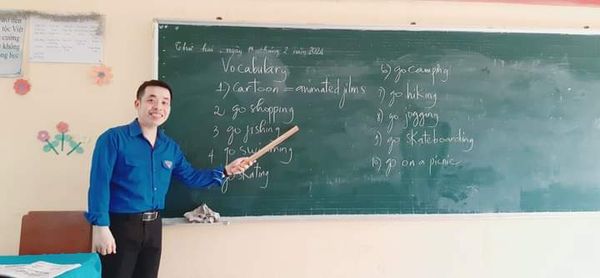 Thứ hai, ngày 19 tháng 2 năm 2024
Vocabulary
1) cartoon = animated films
2 go shopping
3 go fishing
4 go swimming
go skating
6) go camping
7) go hiking
8) go jogging
9) go skateboarding
10) go on a picnic
tộc Việt
cường
không
học